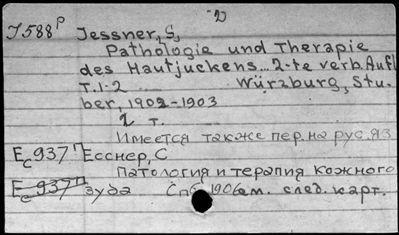 J588ᵖ Jessner, S,
Pathologie und Therapie
des Hautjuckens... 2-te verb. Aufl
T. 1-2 ... Würzburg, Stu.
ber, 1902-1903
2 т.
Имеется также пер. на рус. яз
Ес937ᴾ Есснер, С
Патология и терапия кожного
Ес937ᴾ зуда Спб 1906 см. след. карт.